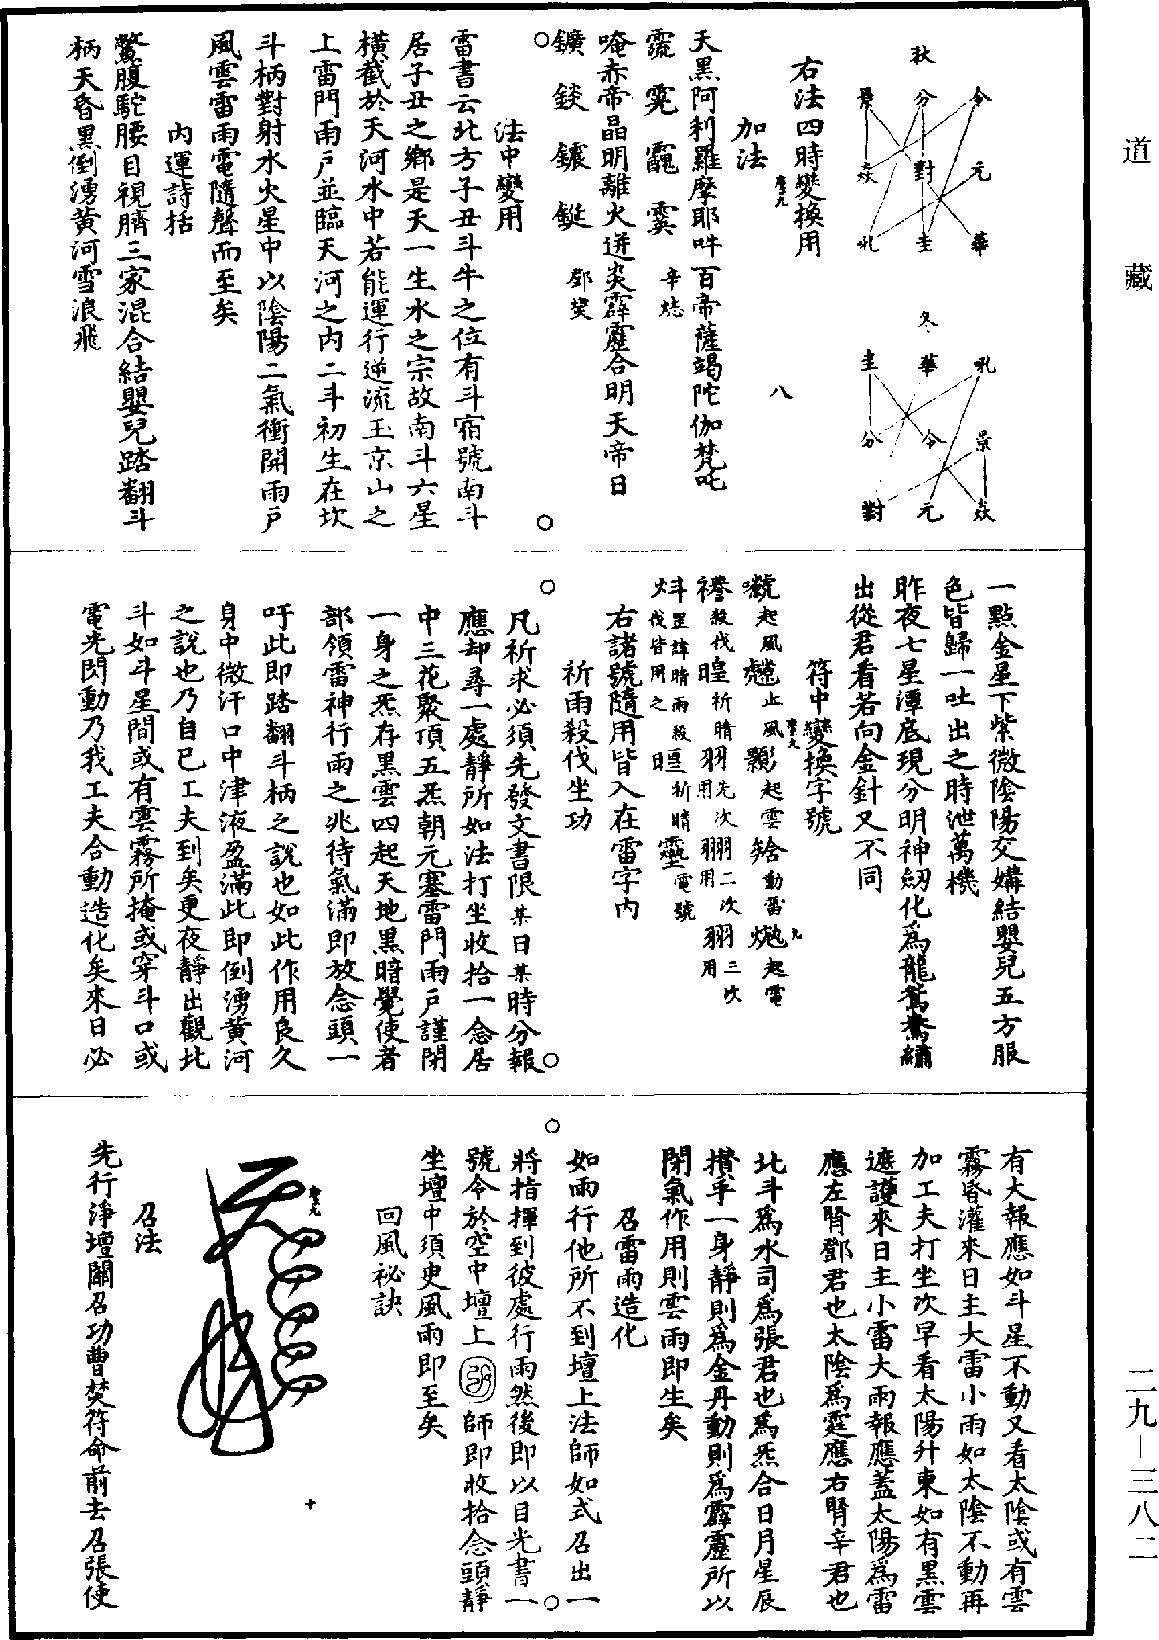 道藏
二九－三八二
秋
令分景
元對焱
華圭吼
冬
吼華圭
景令分
焱元對
右法四時變換用
加法
天黑阿利羅摩耶吽百帝薩竭陀伽梵吒
辛
唵赤帝晶明離火迸炎霹靂合明天帝日
鄧燮
八
法中變用
雷書云北方子丑斗牛之位有斗宿號南斗
居子丑之鄉是天一生水之宗故南斗六星
橫截於天河水中若能運行逆流玉京山之
上雷門雨戶並臨天河之內二斗初生在坎
斗柄對射水火星中以陰陽二氣衝開雨戶
風雲雷雨電隨聲而至矣
內運詩括
鱉腹駝腰目視臍三家混合結嬰兒踏翻斗
柄天昏黑倒湧黃河雪浪飛
一點金星下紫微陰陽交媾結嬰兒五方服
色皆歸一吐出之時泄萬機
昨夜七星潭底現分明神劒化爲龍鴛鴦繡
出從君看若向金針又不同
符中變換字號
起風
止風
起雲
動雷
起電
殺伐
祈晴
先次用
二次用
三次用
斗罡諱晴雨殺伐皆用之
祈晴
電號
九
右諸號隨用皆入在雷字內
祈雨殺伐坐功
凡祈求必須先發文書限某日某時分報
應却尋一處靜所如法打坐收拾一念居
中三花聚頂五炁朝元塞雷門雨戶謹閉
一身之炁存黑雲四起天地黑暗覺使者
部領雷神行雨之兆待氣滿即放念頭一
吁此即踏翻斗柄之說也如此作用良久
身中微汗口中津液盈滿此即倒湧黃河
之說也乃自已工夫到矣更夜靜出觀北
斗如斗星間或有雲霧所掩或穿斗口或
電光閃動乃我工夫合動造化矣來日必
有大報應如斗星不動又看太陰或有雲
霧昏灌來日主大雷小雨如太陰不動再
加工夫打坐次早看太陽升東如有黑雲
遮護來日主小雷大雨報應蓋太陽爲雷
應左腎鄧君也太陰爲霆應右腎辛君也
北斗爲水司爲張君也爲炁合日月星辰
攢乎一身靜則爲金丹動則爲霹靂所以
閉氣作用則雲雨即生矣
召雷雨造化
如雨行他所不到壇上法師如式召出一
將指揮到彼處行雨然後即以目光書一
號令於空中壇上師即收拾念頭靜
坐壇中須臾風雨即至矣
回風祕訣
十
召法
先行淨壇關召功曹焚符命前去召張使